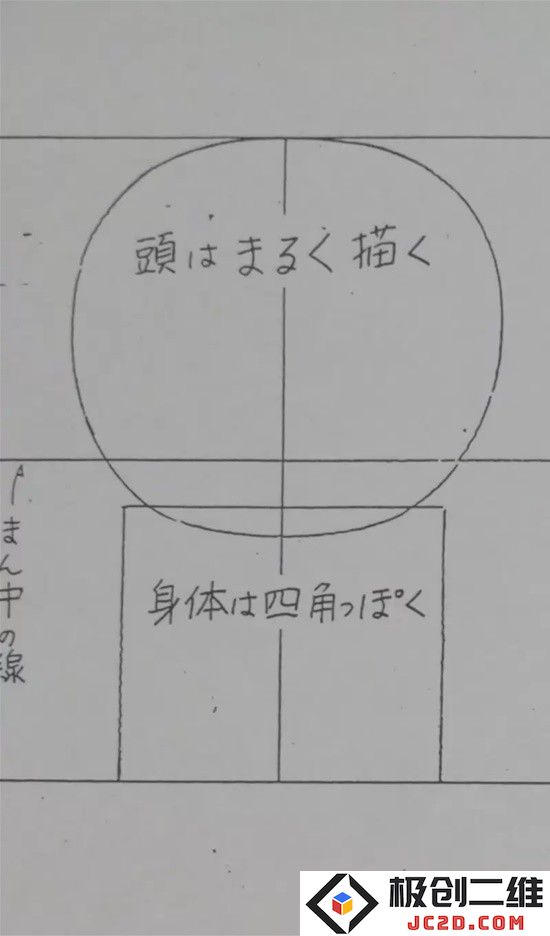 頭はまるく描く
まん中の線
身体は四角っぽく
极创二维
JC2D.COM